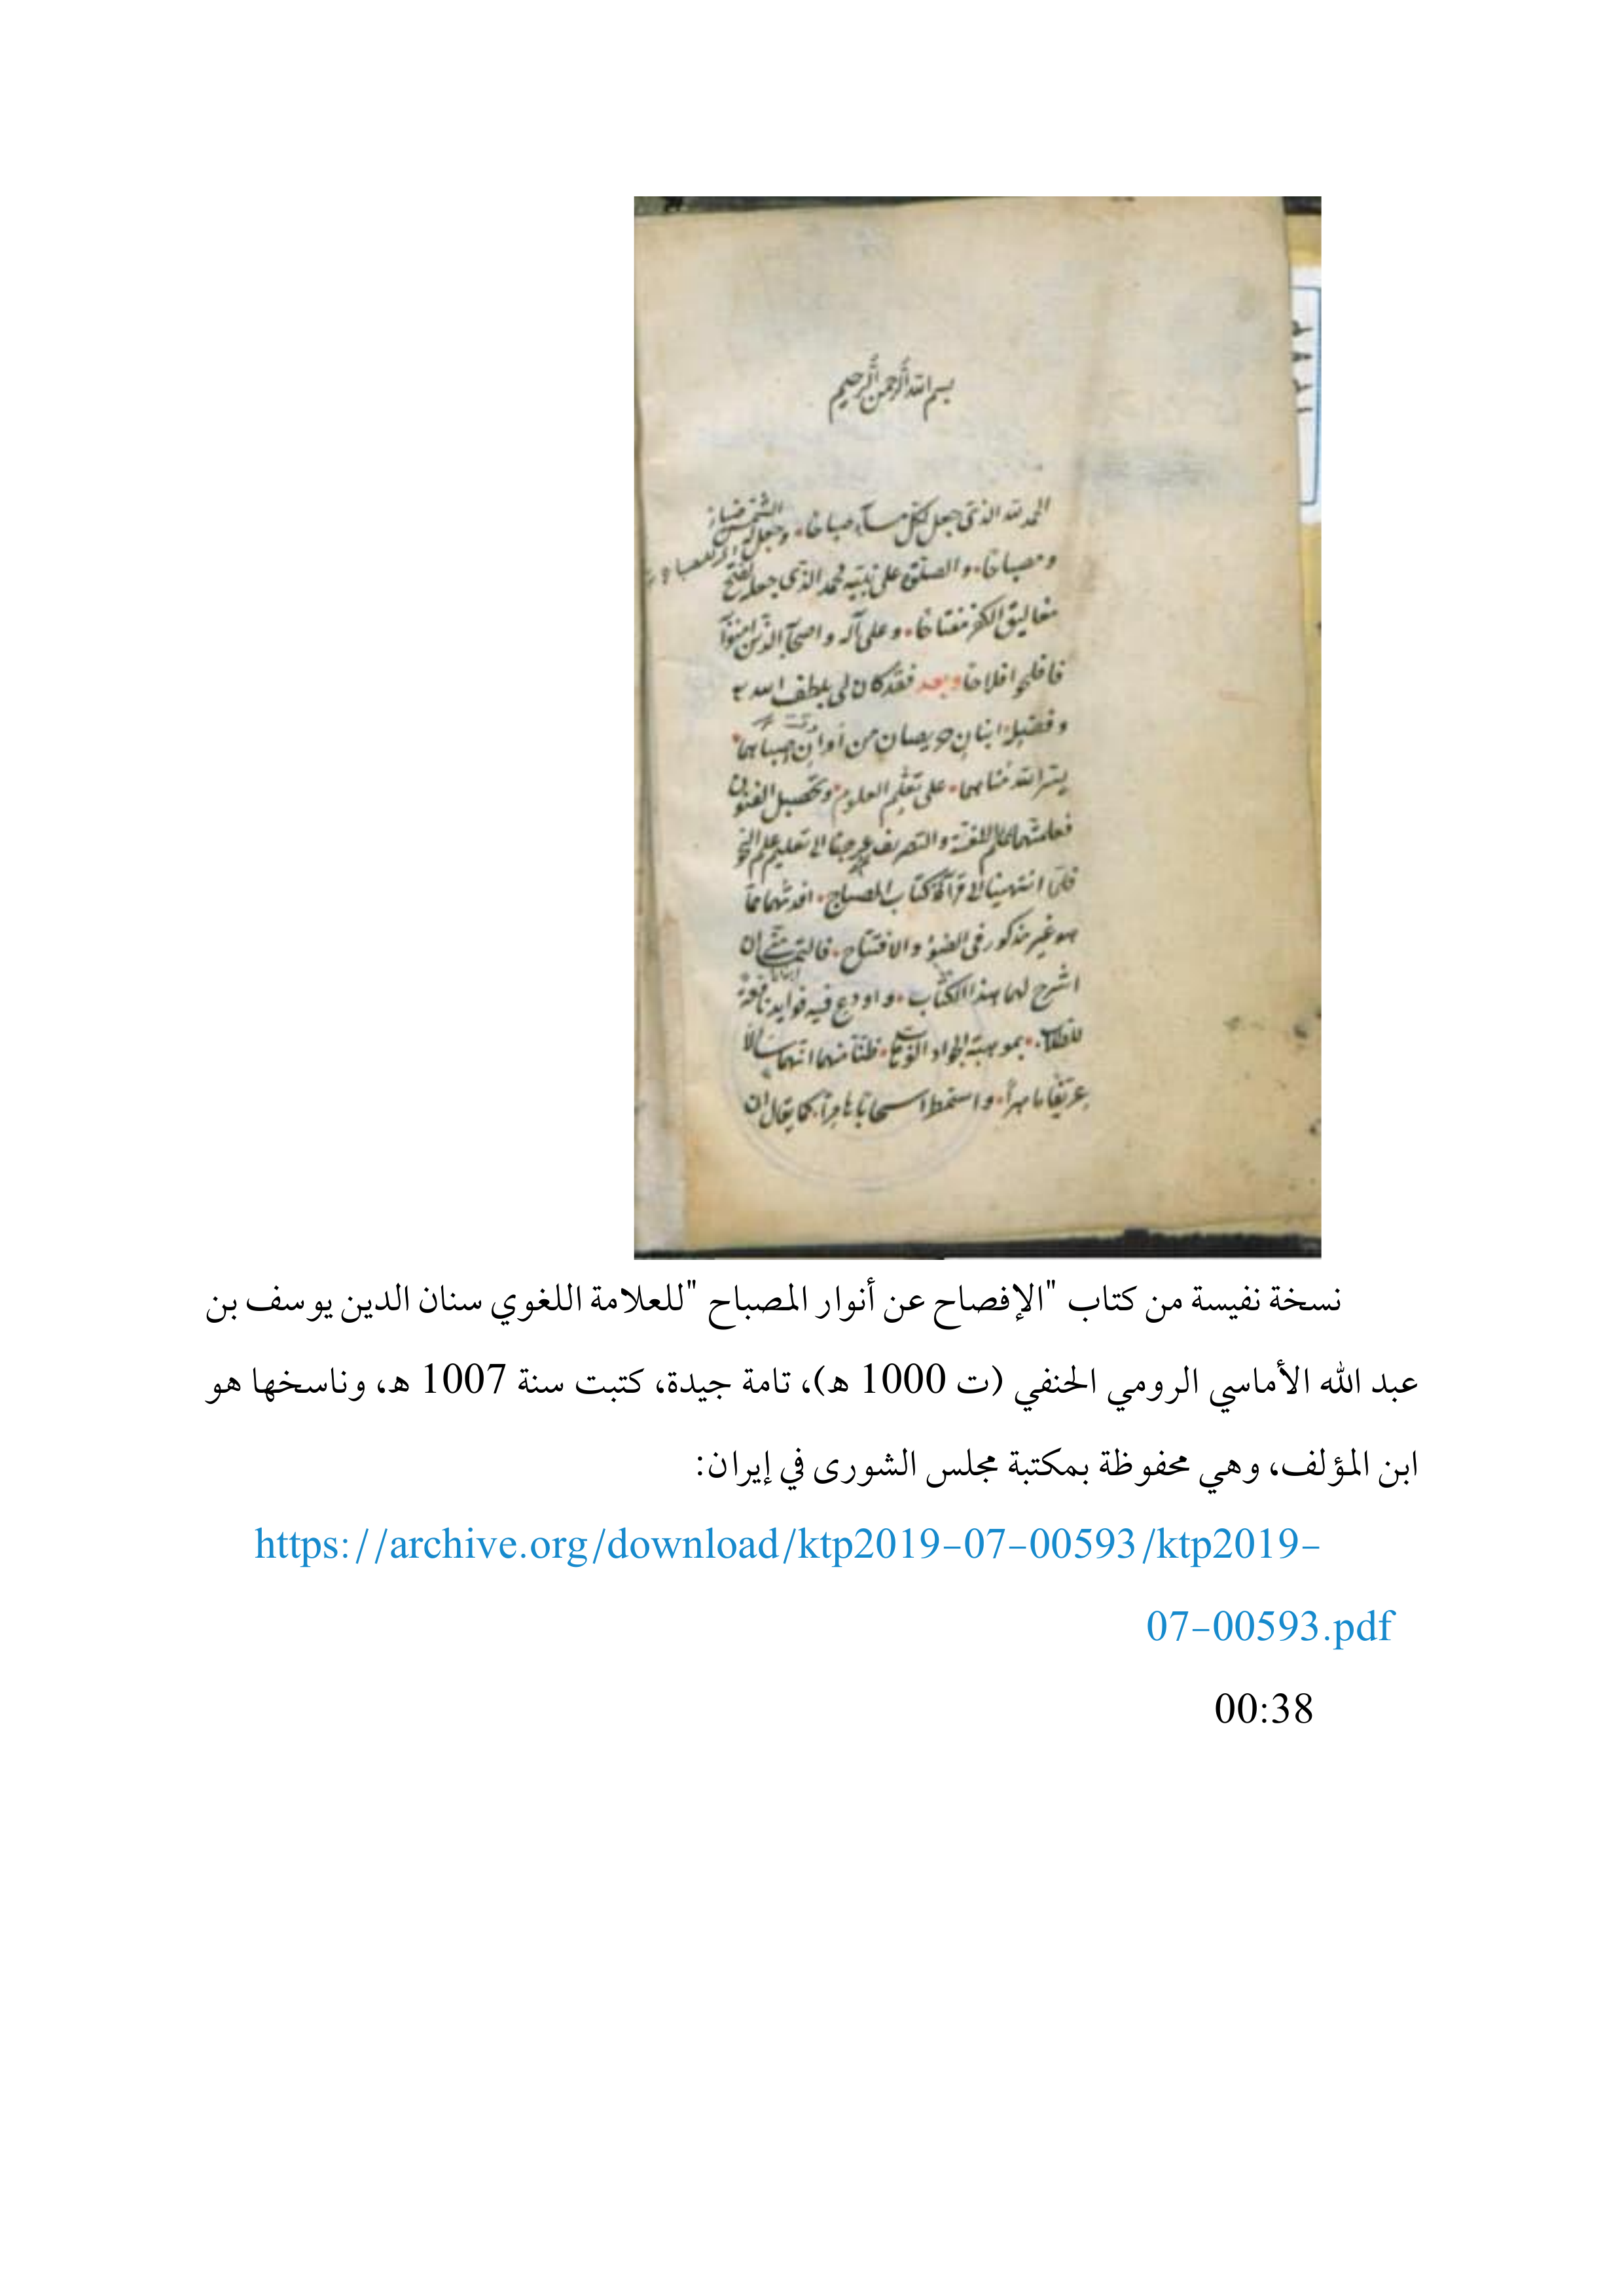 بسم الله الرحمن الرحيم
الحمد لله الذى جعل لكل مساء صباحا وجعل الشمس ضياء
ومصباحا والصلوة على نبيه محمد الذى جعله لفتح
مغاليق الكفر مفتاحا وعلى آله واصحابه الذين امنوا
فافلحوا افلاحا وبعد فقد كان لى بلطف الله
وفضله ابنان حريصان من أوان صباهما
يسر الله مناهما على تعلم العلوم وتحصيل الفنون
فعلمتهما علم اللغة والتصريف الى تعليم علم النحو
فلما انتهينا الى قرآءة كتاب المصباح افدتهما مما
هو غير مذكور فى الضوء والافتتاح فالتمسا منى ان
اشرح لهما هذا الكتاب واودع فيه فوايد نافعة
للطلاب بموهبة الجواد الوهاب ظنا منهما انهما سالا
عريفا ماهرا واستمطرا سحابا هامرا كما يقال ان
نسخة نفيسة من كتاب "الإفصاح عن أنوار المصباح "للعلامة اللغوي سنان الدين يوسف بن
عبد الله الأماسي الرومي الحنفي (ت 1000 هـ)، تامة جيدة، كتبت سنة 1007 هـ، وناسخها هو
ابن المؤلف، وهي محفوظة بمكتبة مجلس الشورى في إيران:
https://archive.org/download/ktp2019-07-00593/ktp2019-
07-00593.pdf
00:38